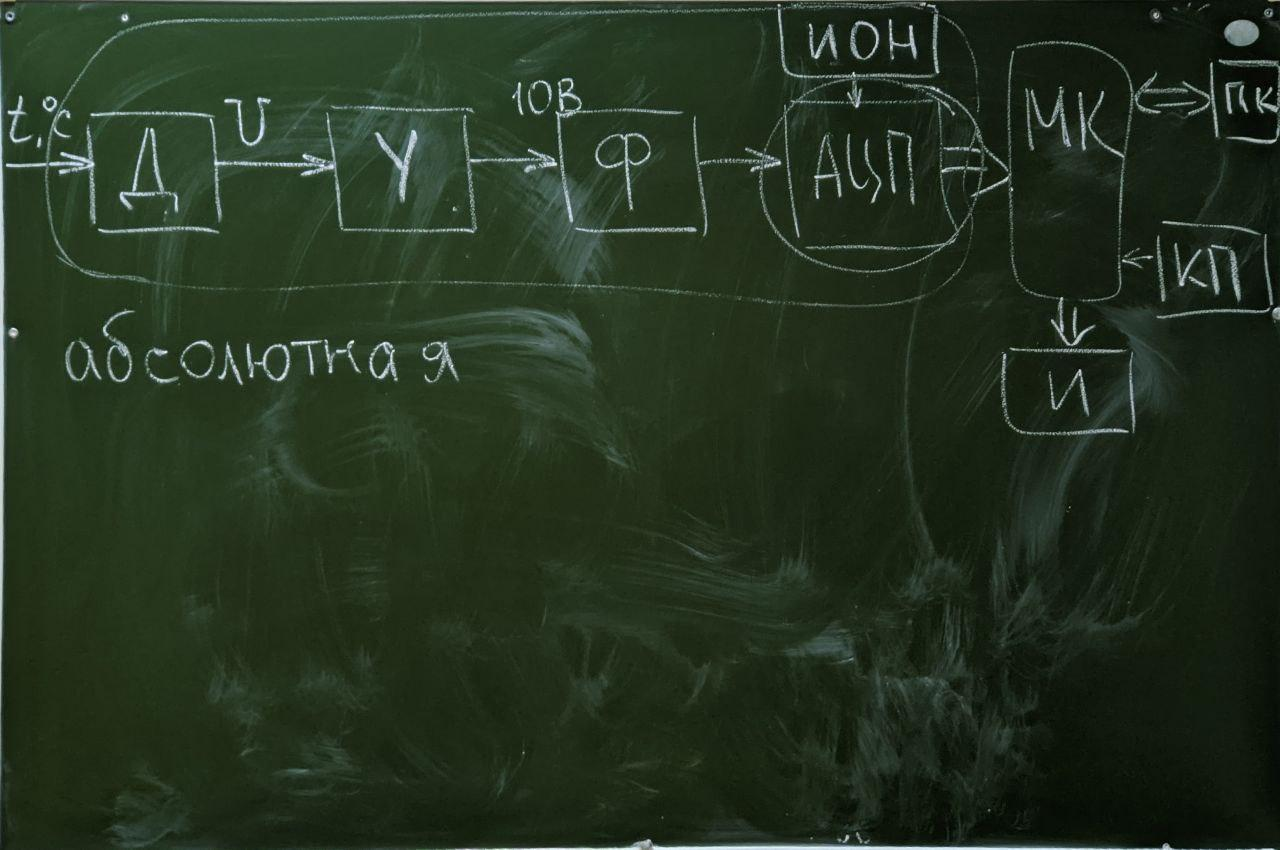 ИОН
t,°c Д U У 10В Ф АЦП МК ПК
КП
И
абсолютная